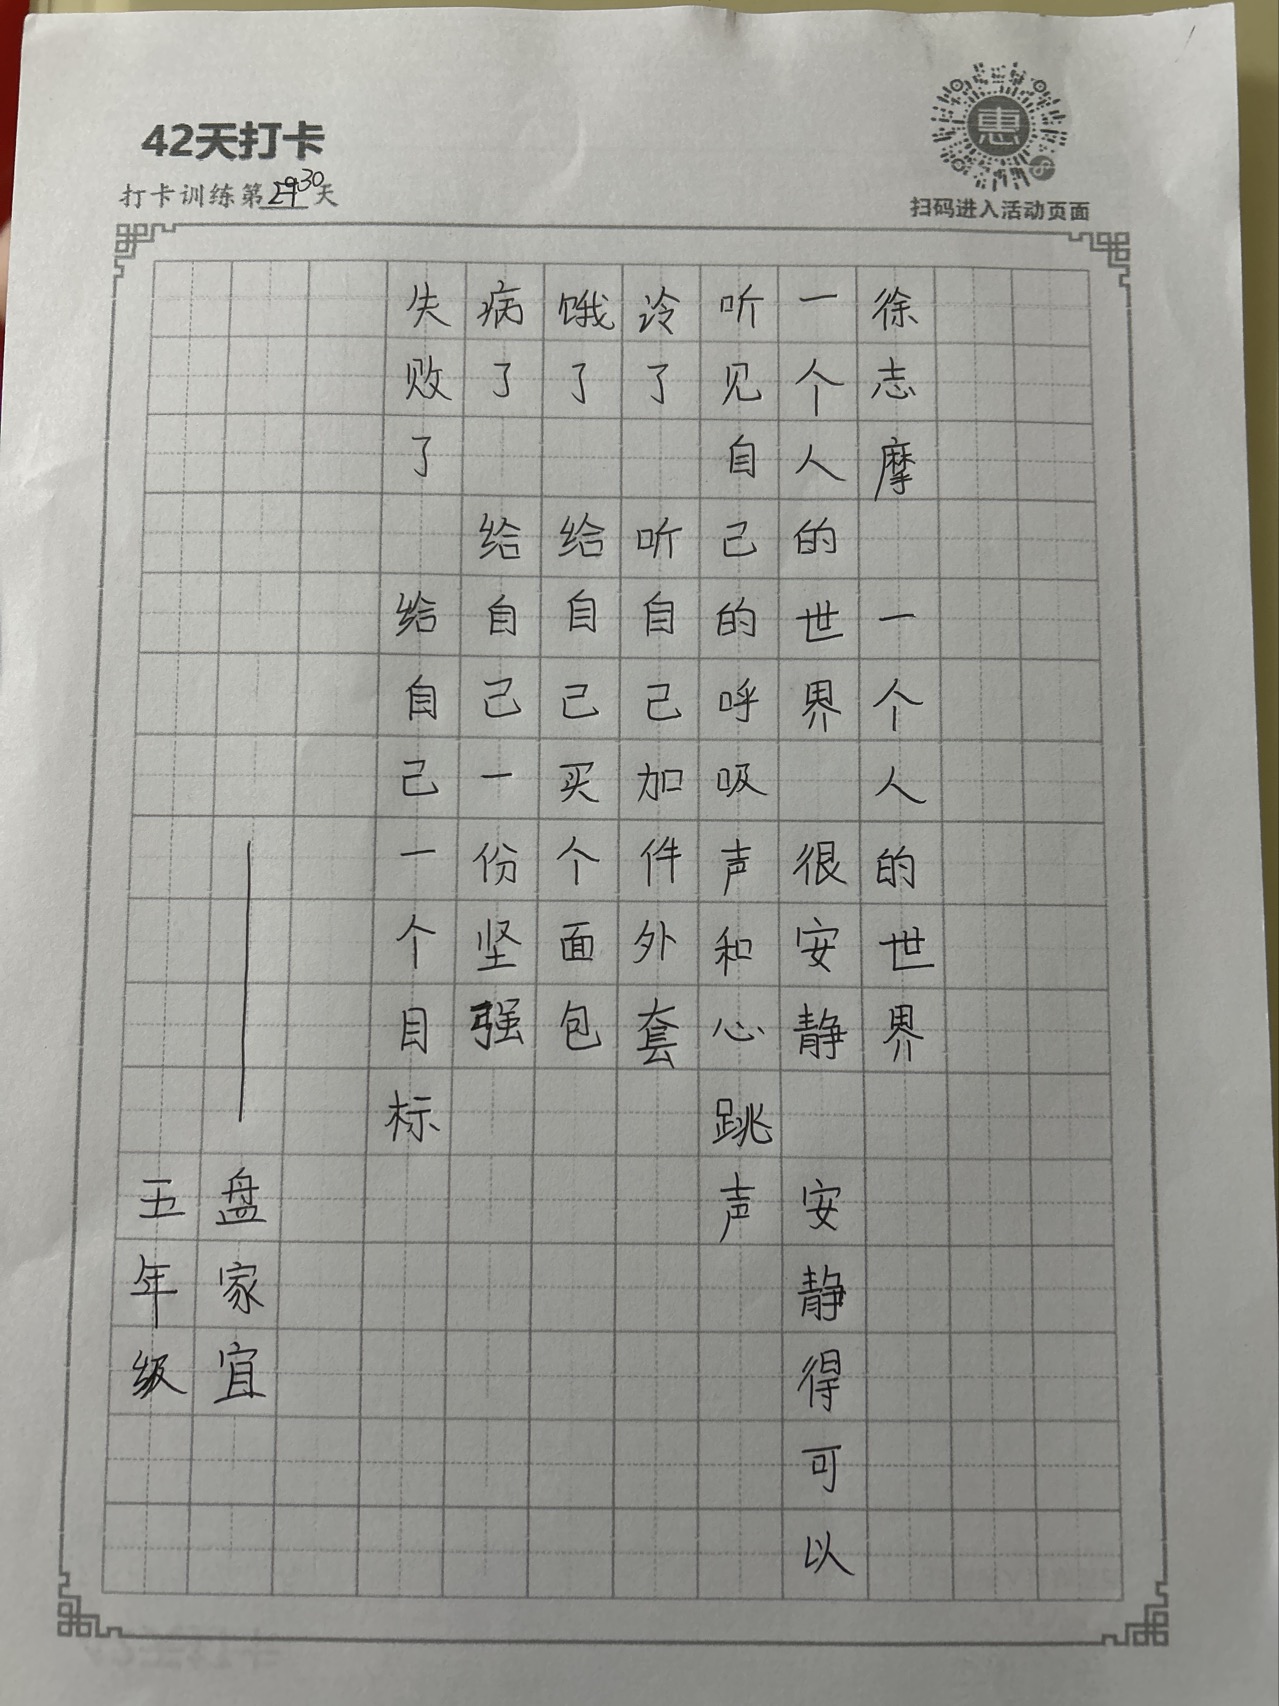 42天打卡
打卡训练第29 30天
惠
扫码进入活动页面
徐志摩 一个人的世界
一个人的世界 很安静 安静得可以
听见自己的呼吸声和心跳声
冷了 听自己加件外套
饿了 给自己买个面包
病了 给自己一份坚强
失败了 给自己一个目标
——盘家宜
五年级